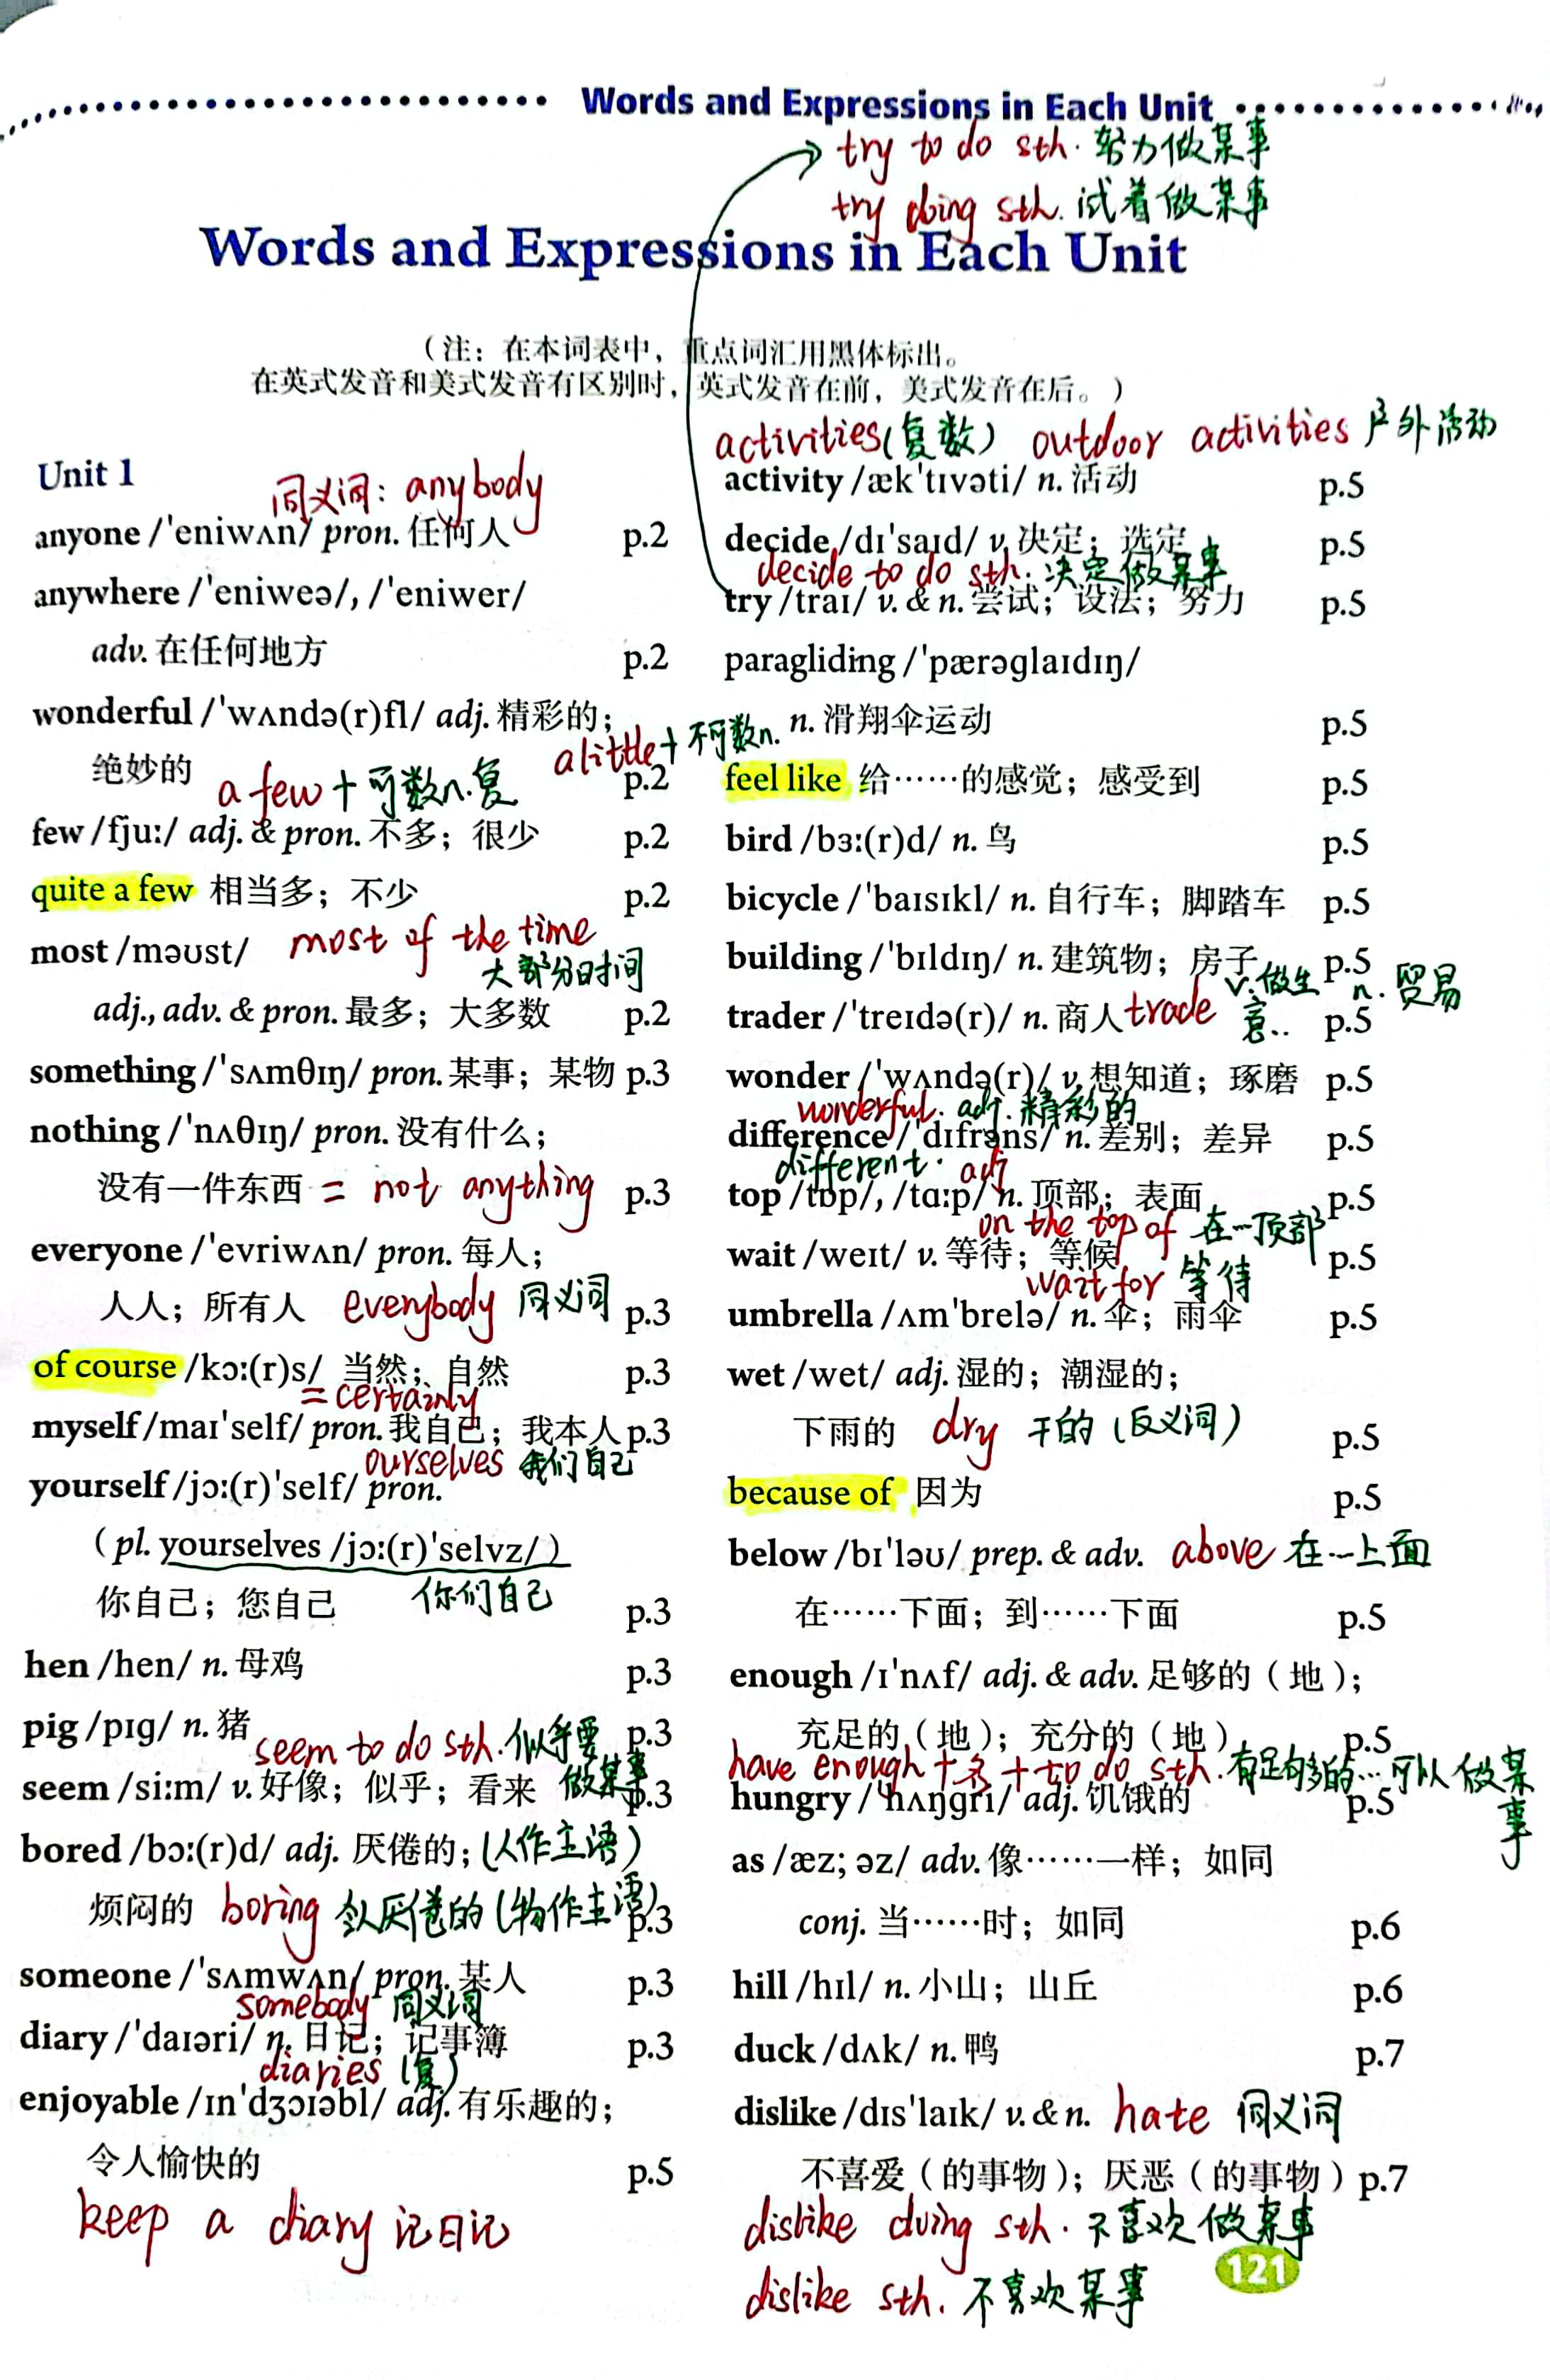 Words and Expressions in Each Unit
try to do sth. 努力做某事
try doing sth. 试着做某事
Words and Expressions in Each Unit
（注：在本词表中，重点词汇用黑体标出。
在英式发音和美式发音有区别时，英式发音在前，美式发音在后。）
Unit 1
同义词: anybody
anyone /ˈeniwʌn/ pron. 任何人 p.2
anywhere /ˈeniweə/, /ˈeniwer/
adv. 在任何地方 p.2
wonderful /ˈwʌndə(r)fl/ adj. 精彩的；
绝妙的 p.2
a few + 可数n.复 a little + 不可数n.
few /fjuː/ adj. & pron. 不多；很少 p.2
quite a few 相当多；不少 p.2
most /məʊst/ most of the time
大部分时间
adj., adv. & pron. 最多；大多数 p.2
something /ˈsʌmθɪŋ/ pron. 某事；某物 p.3
nothing /ˈnʌθɪŋ/ pron. 没有什么；
没有一件东西 = not anything p.3
everyone /ˈevriwʌn/ pron. 每人；
人人；所有人 everybody 同义词 p.3
of course /kɔː(r)s/ 当然；自然 p.3
= certainly
myself /maɪˈself/ pron. 我自己；我本人 p.3
ourselves 我们自己
yourself /jɔː(r)ˈself/ pron.
（pl. yourselves /jɔː(r)ˈselvz/）
你自己；您自己 你们自己 p.3
hen /hen/ n. 母鸡 p.3
pig /pɪɡ/ n. 猪 p.3
seem to do sth. 似乎要做某事
seem /siːm/ v. 好像；似乎；看来 p.3
bored /bɔː(r)d/ adj. 厌倦的；(人作主语)
烦闷的 boring 令人厌倦的 (物作主语) p.3
someone /ˈsʌmwʌn/ pron. 某人 p.3
somebody 同义词
diary /ˈdaɪəri/ n. 日记；记事簿 p.3
diaries (复)
enjoyable /ɪnˈdʒɔɪəbl/ adj. 有乐趣的；
令人愉快的 p.5
keep a diary 记日记
activities (复数) outdoor activities 户外活动
activity /ækˈtɪvəti/ n. 活动 p.5
decide /dɪˈsaɪd/ v. 决定；选定 p.5
decide to do sth. 决定做某事
try /traɪ/ v. & n. 尝试；设法；努力 p.5
paragliding /ˈpærəɡlaɪdɪŋ/
n. 滑翔伞运动 p.5
feel like 给……的感觉；感受到 p.5
bird /bɜː(r)d/ n. 鸟 p.5
bicycle /ˈbaɪsɪkl/ n. 自行车；脚踏车 p.5
building /ˈbɪldɪŋ/ n. 建筑物；房子 p.5
trader /ˈtreɪdə(r)/ n. 商人 p.5
trade v. 做生意.. n. 贸易
wonder /ˈwʌndə(r)/ v. 想知道；琢磨 p.5
wonderful. adj. 精彩的
difference /ˈdɪfrəns/ n. 差别；差异 p.5
different. adj
top /tɒp/, /tɑːp/ n. 顶部；表面 p.5
on the top of 在…顶部
wait /weɪt/ v. 等待；等候 p.5
wait for 等待
umbrella /ʌmˈbrelə/ n. 伞；雨伞 p.5
wet /wet/ adj. 湿的；潮湿的；
下雨的 dry 干的 (反义词) p.5
because of 因为 p.5
below /bɪˈləʊ/ prep. & adv. above 在…上面
在……下面；到……下面 p.5
enough /ɪˈnʌf/ adj. & adv. 足够的（地）；
充足的（地）；充分的（地） p.5
have enough + 名 + to do sth. 有足够多的…可以做某事
hungry /ˈhʌŋɡri/ adj. 饥饿的 p.5
as /æz; əz/ adv. 像……一样；如同
conj. 当……时；如同 p.6
hill /hɪl/ n. 小山；山丘 p.6
duck /dʌk/ n. 鸭 p.7
dislike /dɪsˈlaɪk/ v. & n. hate 同义词
不喜爱（的事物）；厌恶（的事物） p.7
dislike doing sth. 不喜欢做某事
dislike sth. 不喜欢某事
121